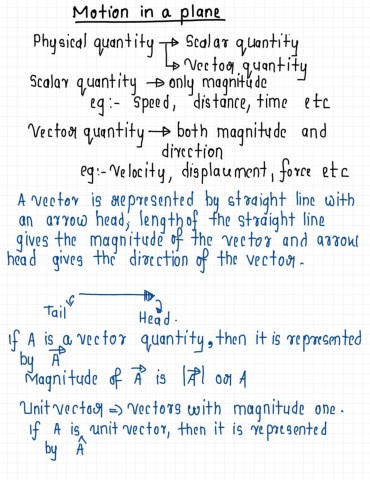 Motion in a plane
Physical quantity → Scalar quantity
↳ Vector quantity
Scalar quantity → only magnitude
eg:- Speed, distance, time etc
Vector quantity → both magnitude and
direction
eg:- Velocity, displacement, force etc
A vector is represented by straight line with
an arrow head, length of the straight line
gives the magnitude of the vector and arrow
head gives the direction of the vector.
Tail Head.
If A is a vector quantity, then it is represented
by A⃗
Magnitude of A⃗ is |A⃗| or A
Unit vector ⇒ vectors with magnitude one.
If A is unit vector, then it is represented
by Â